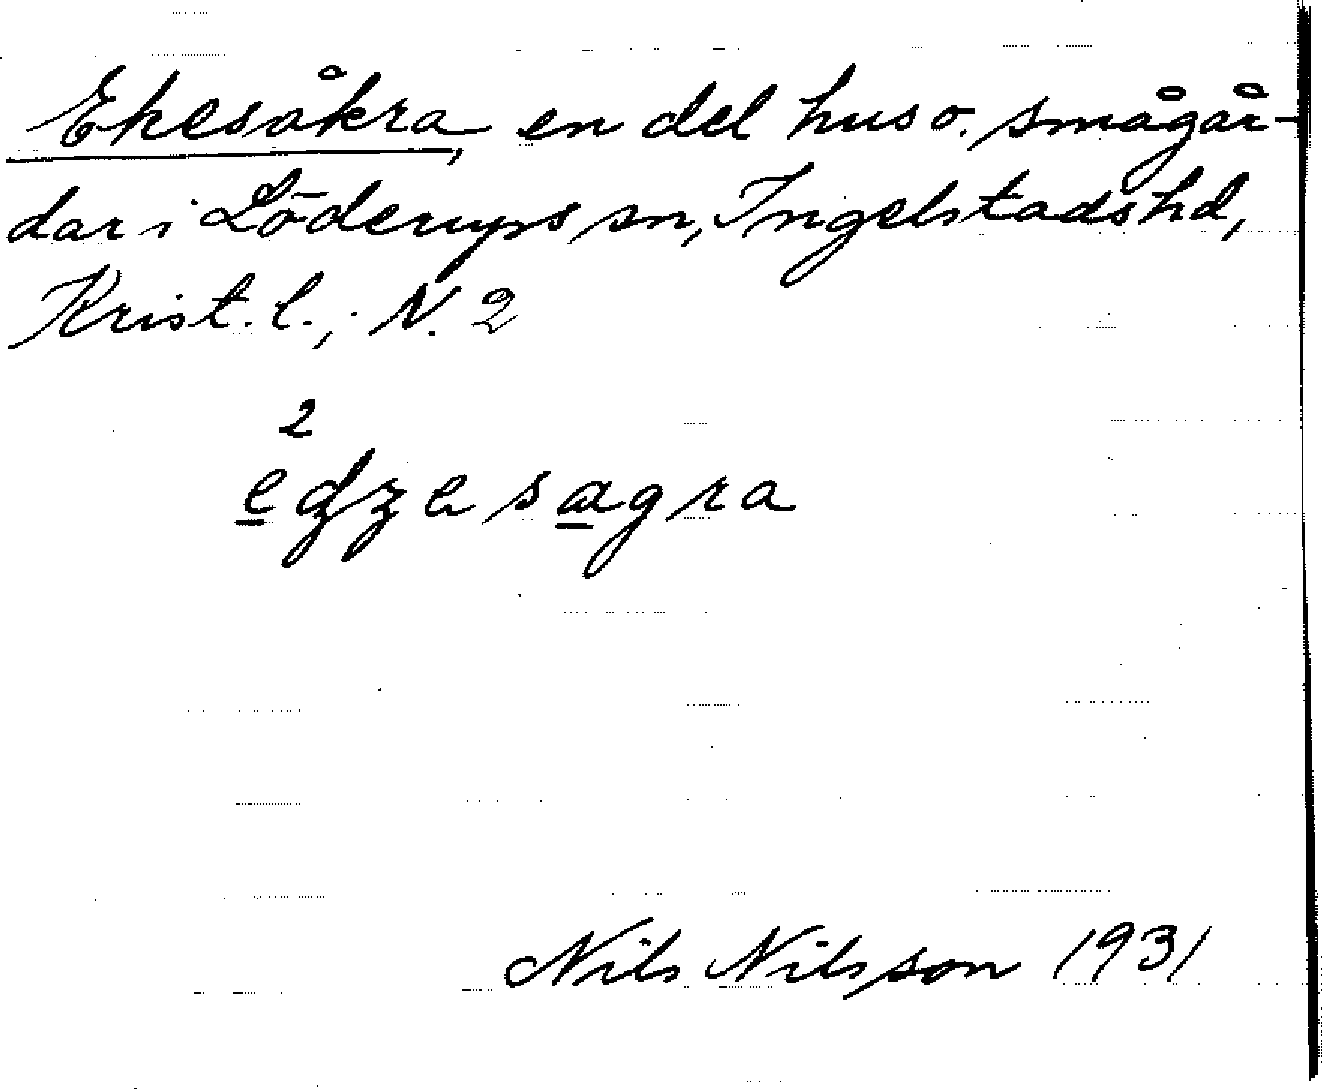 Ekesåkra, en del hus o. smågår-
dar i Löderups sn, Ingelstads hd,
Krist. l.; N. 2
2
edzesagra
Nils Nilsson 1931